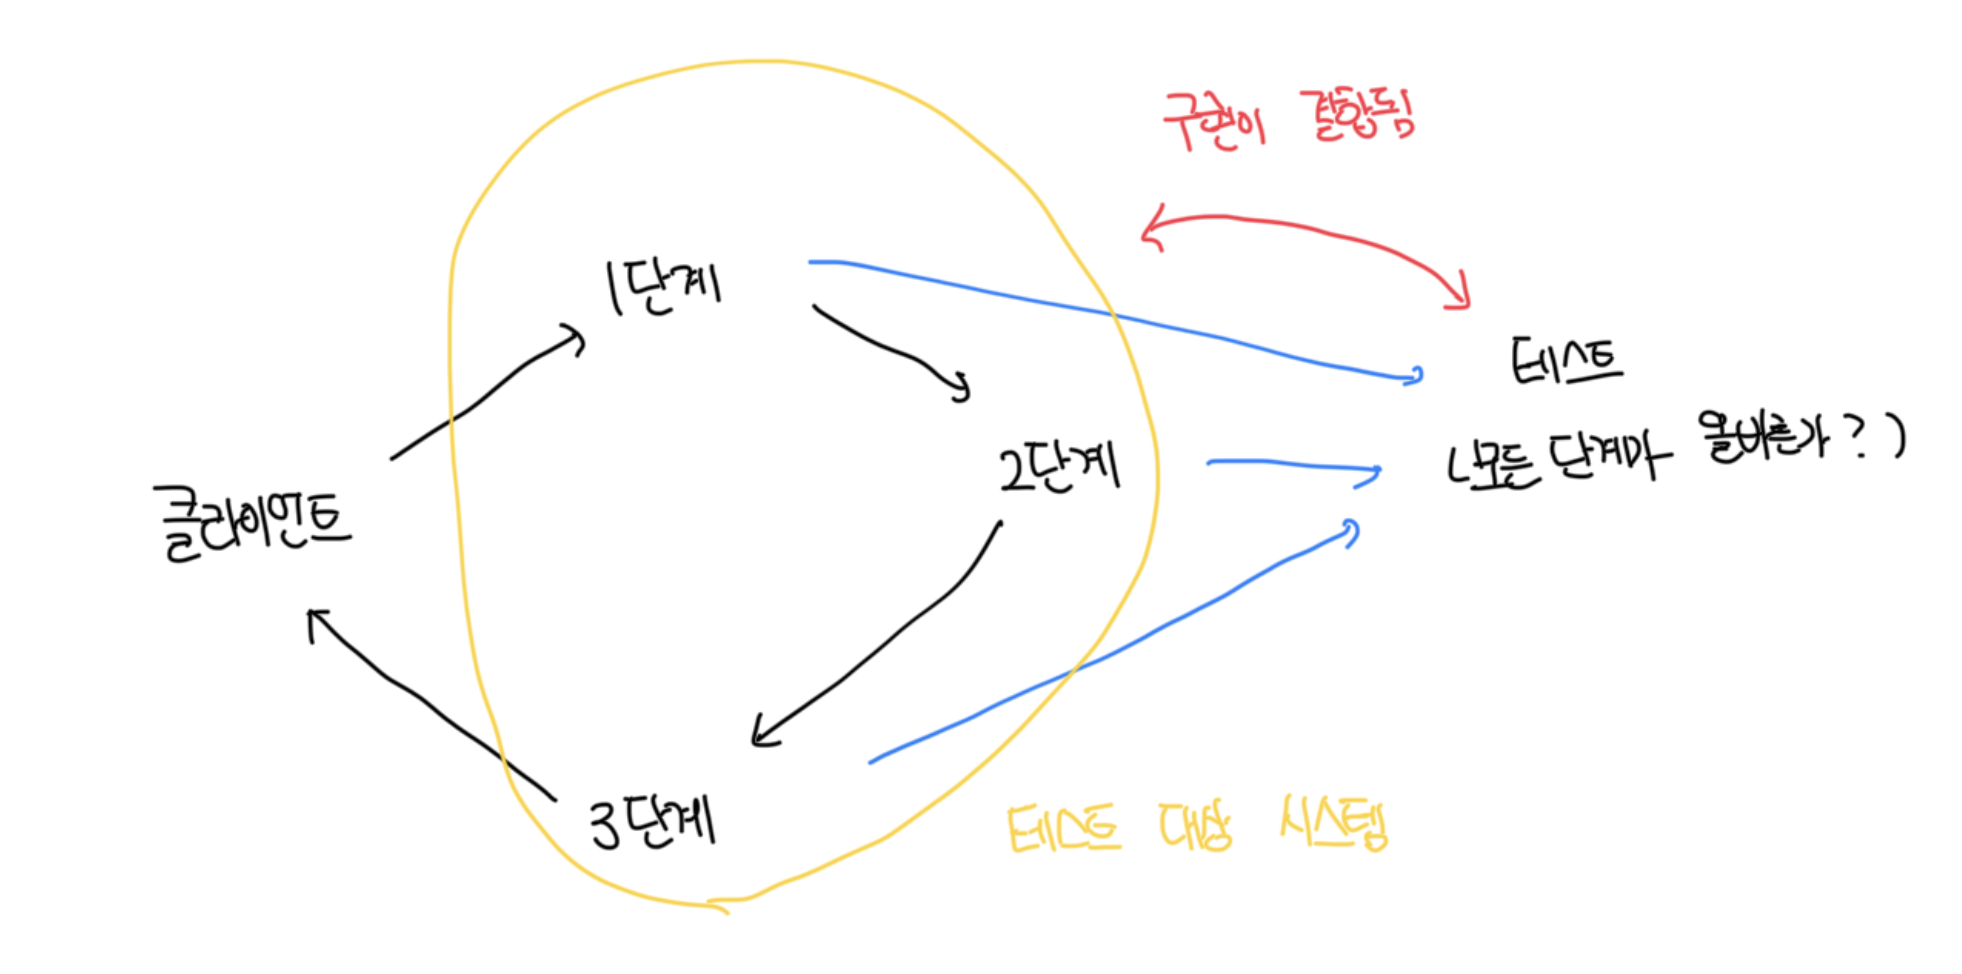 구현이 결합됨
1단계
테스트
2단계
(모든 단계마다 올바른가?)
클라이언트
3단계
테스트 대상 시스템